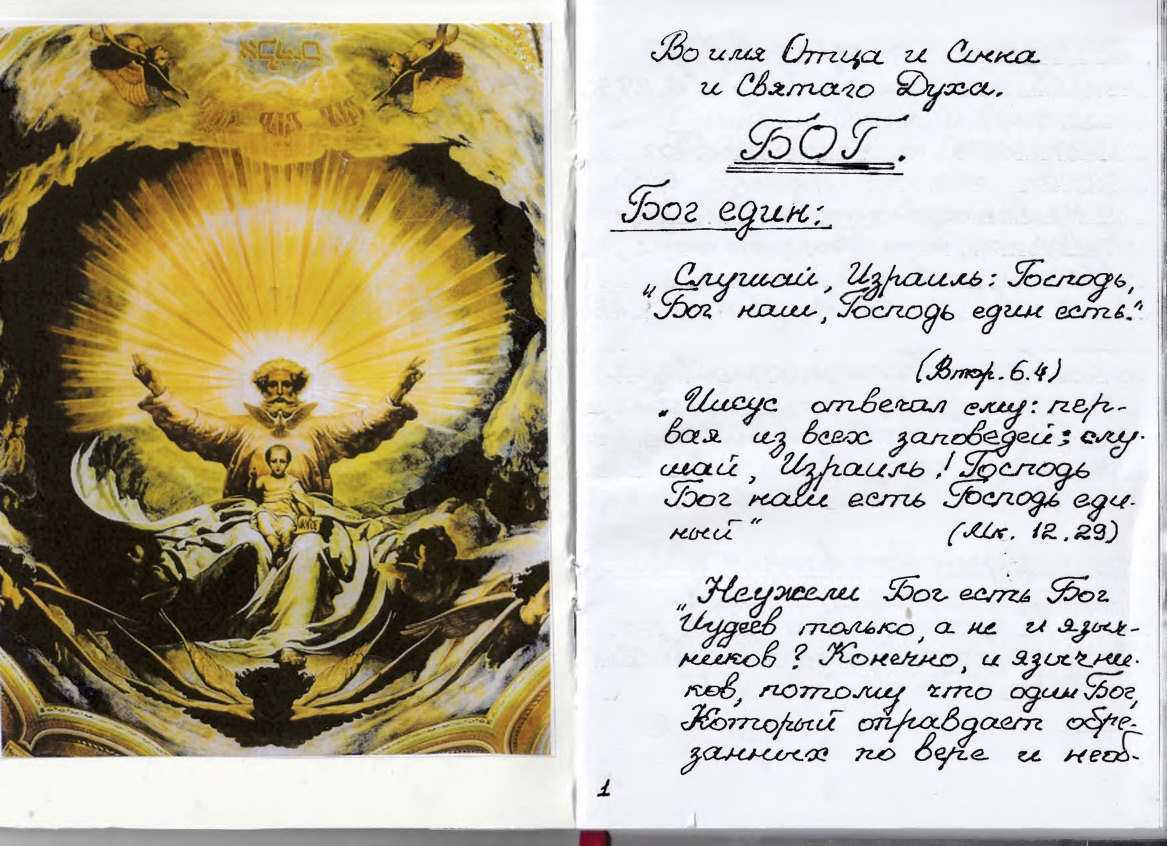 Во имя Отца и Сына
и Святаго Духа.
БОГ.
Бог един:
„Слушай, Израиль: Господь,
Бог наш, Господь един есть."
(Втор. 6.4)
„Иисус отвечал ему: пер-
вая из всех заповедей: слу-
шай, Израиль! Господь
Бог наш есть Господь еди-
ный“
(Мк. 12.29)
„Неужели Бог есть Бог
Иудеев только, а не и языч-
ников? Конечно, и язычни-
ков, потому что один Бог,
Который оправдает обре-
занных по вере и необ-
1